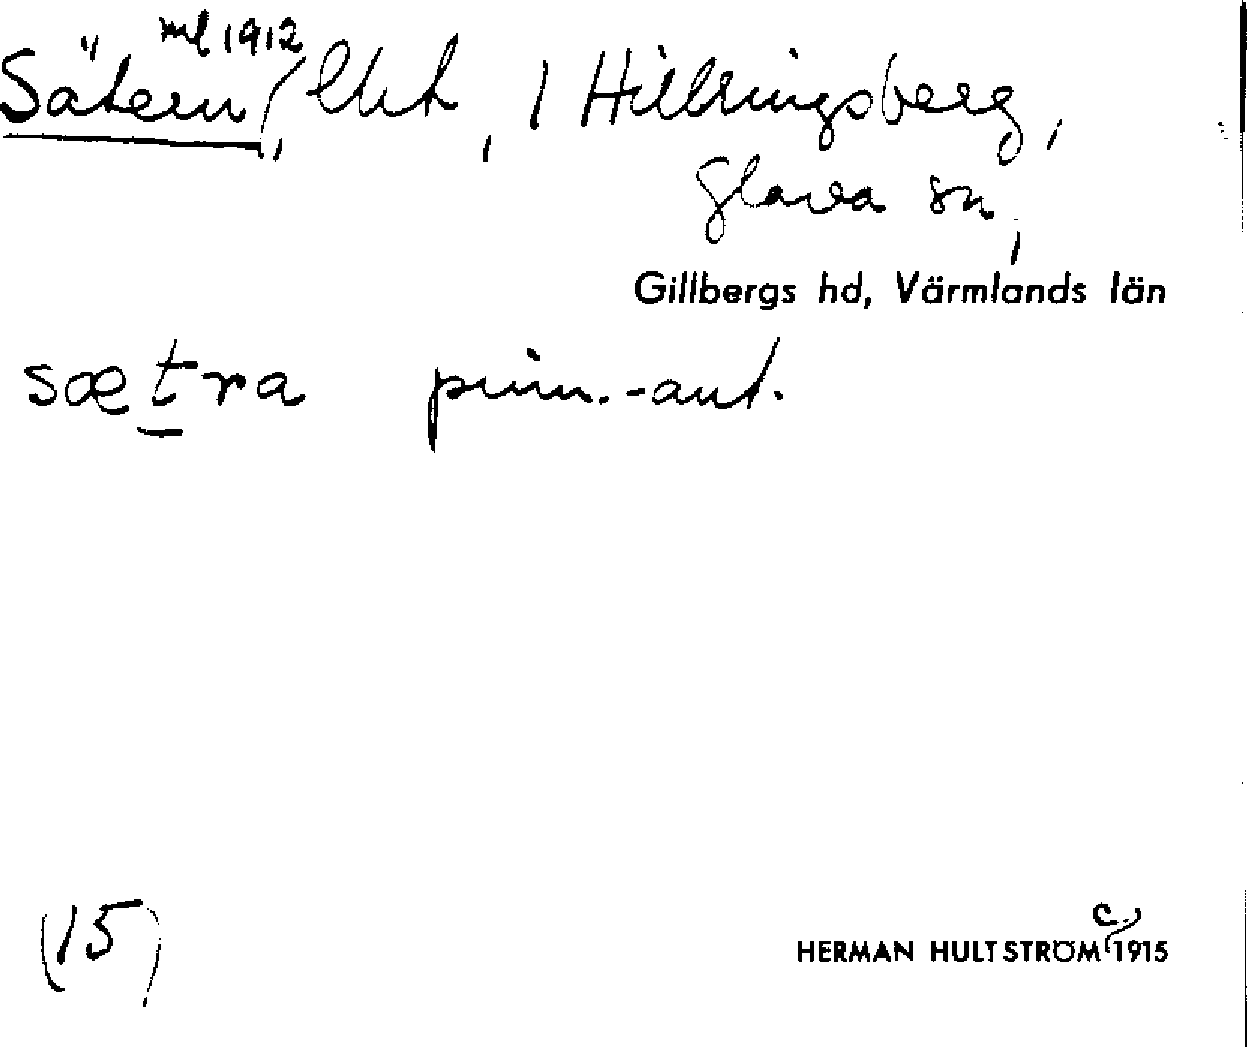 ml 1912
Sätern, lht, 1 Hillringsberg,
Glava sn,
Gillbergs hd, Värmlands län
sætra prim.-ant.
(15)
c.
HERMAN HULTSTRÖM 1915